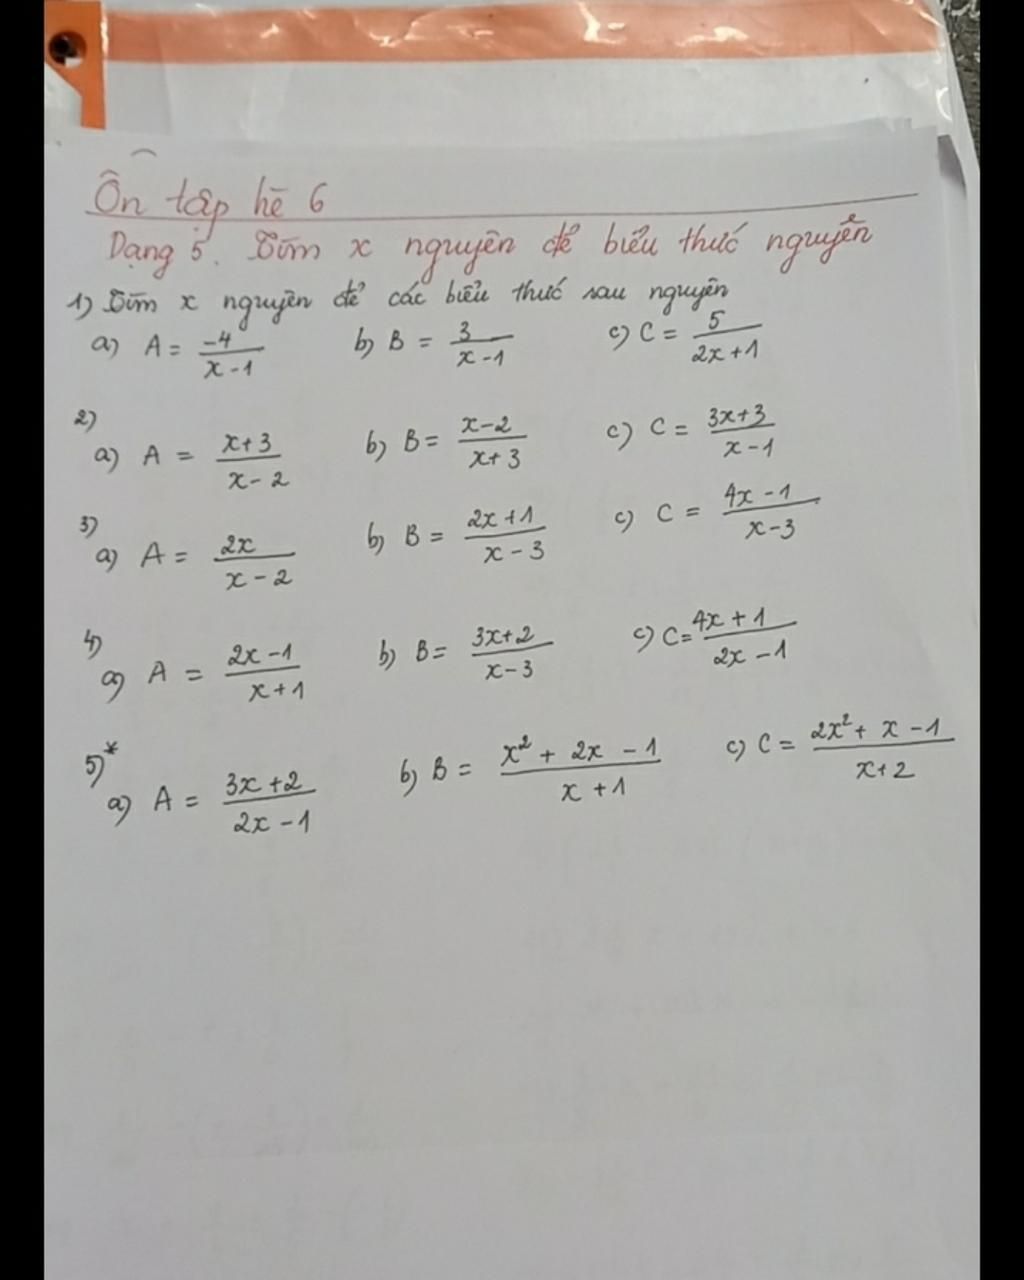 Ôn tập hè 6
Dạng 5. Tìm x nguyên để biểu thức nguyên
1) Tìm x nguyên để các biểu thức sau nguyên
a) A = -4/(x-1) b) B = 3/(x-1) c) C = 5/(2x+1)
2)
a) A = (x+3)/(x-2) b) B = (x-2)/(x+3) c) C = (3x+3)/(x-1)
3)
a) A = 2x/(x-2) b) B = (2x+1)/(x-3) c) C = (4x-1)/(x-3)
4)
a) A = (2x-1)/(x+1) b) B = (3x+2)/(x-3) c) C = (4x+1)/(2x-1)
5)*
a) A = (3x+2)/(2x-1) b) B = (x²+2x-1)/(x+1) c) C = (2x²+x-1)/(x+2)